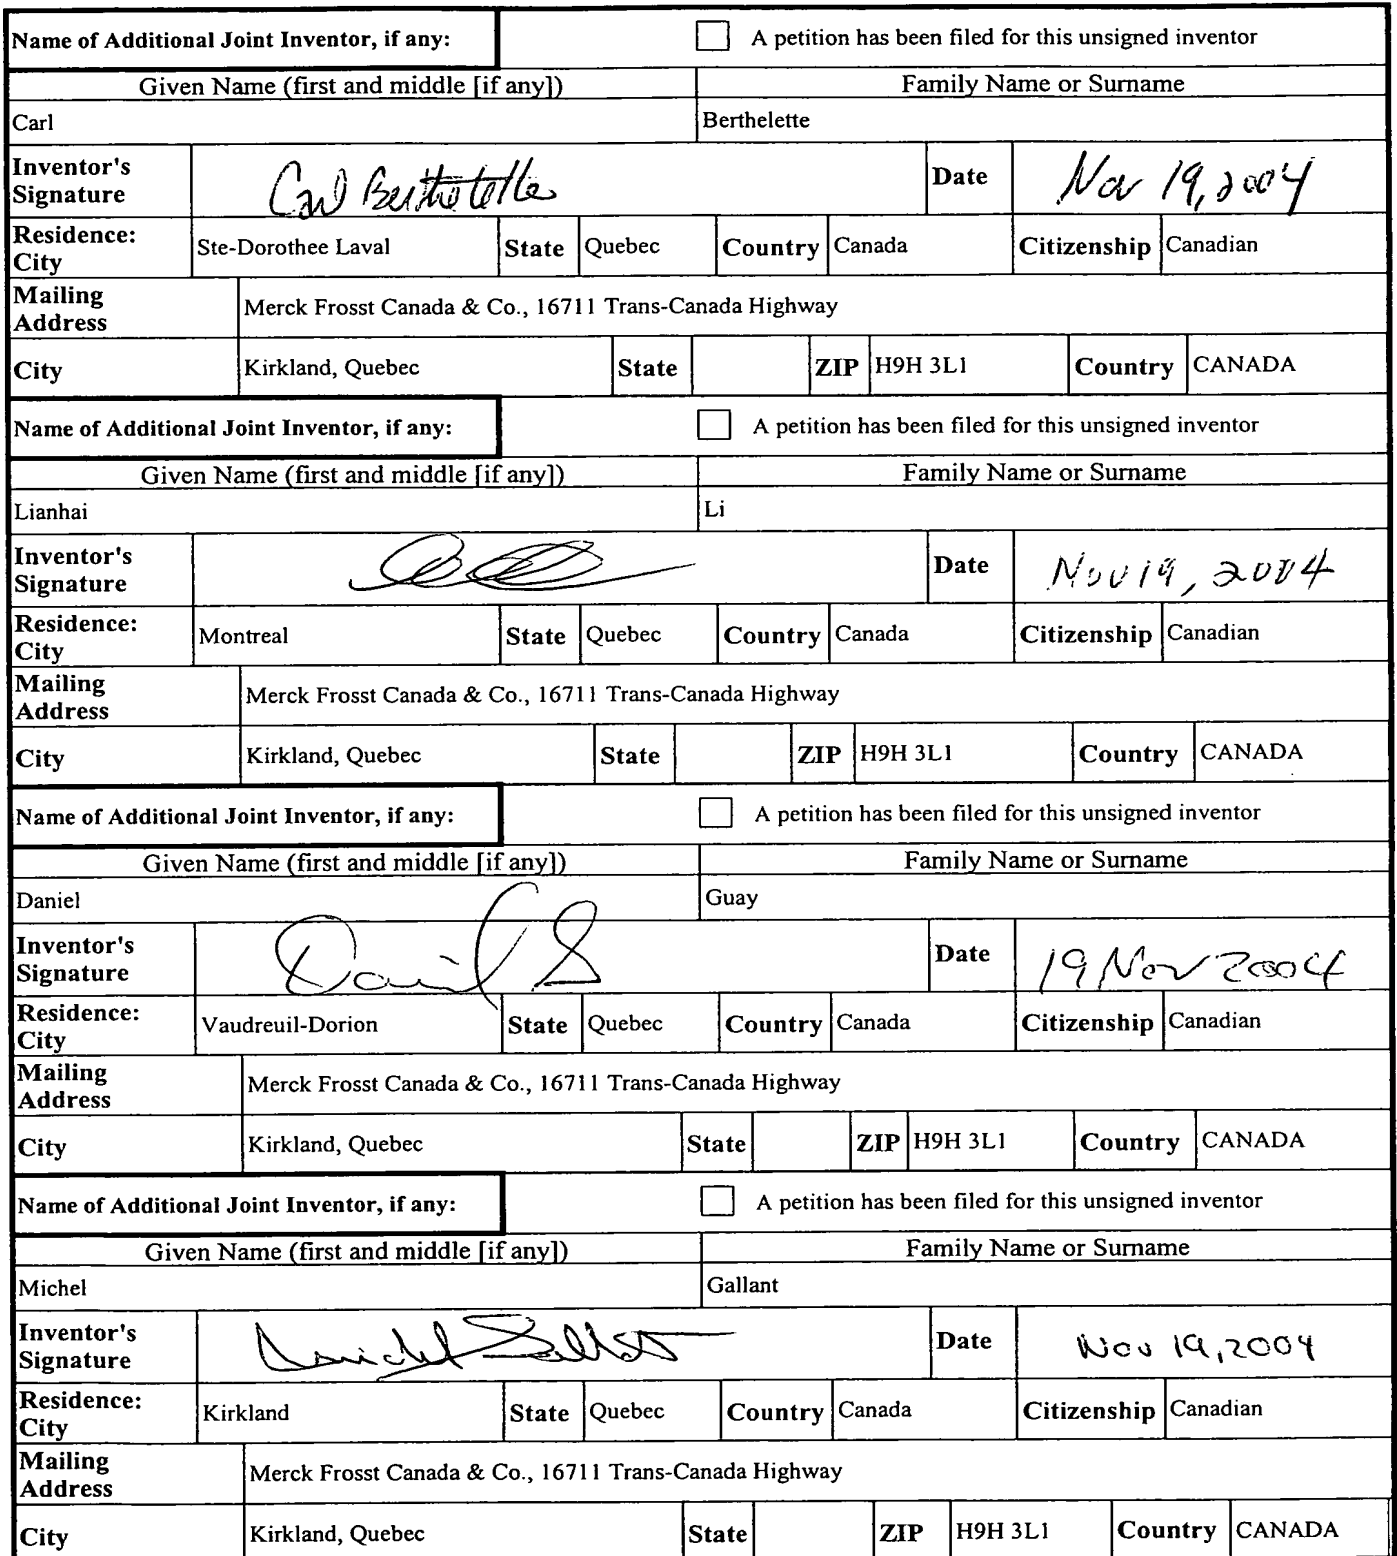 Name of Additional Joint Inventor, if any: A petition has been filed for this unsigned inventor
Given Name (first and middle [if any]) Family Name or Surname
Carl Berthelette
Inventor's Signature Carl Berthelette Date Nov 19, 2004
Residence: City Ste-Dorothee Laval State Quebec Country Canada Citizenship Canadian
Mailing Address Merck Frosst Canada & Co., 16711 Trans-Canada Highway
City Kirkland, Quebec State ZIP H9H 3L1 Country CANADA
Name of Additional Joint Inventor, if any: A petition has been filed for this unsigned inventor
Given Name (first and middle [if any]) Family Name or Surname
Lianhai Li
Inventor's Signature Date Nov 19, 2004
Residence: City Montreal State Quebec Country Canada Citizenship Canadian
Mailing Address Merck Frosst Canada & Co., 16711 Trans-Canada Highway
City Kirkland, Quebec State ZIP H9H 3L1 Country CANADA
Name of Additional Joint Inventor, if any: A petition has been filed for this unsigned inventor
Given Name (first and middle [if any]) Family Name or Surname
Daniel Guay
Inventor's Signature Daniel G Date 19 Nov 2004
Residence: City Vaudreuil-Dorion State Quebec Country Canada Citizenship Canadian
Mailing Address Merck Frosst Canada & Co., 16711 Trans-Canada Highway
City Kirkland, Quebec State ZIP H9H 3L1 Country CANADA
Name of Additional Joint Inventor, if any: A petition has been filed for this unsigned inventor
Given Name (first and middle [if any]) Family Name or Surname
Michel Gallant
Inventor's Signature Michel Gallant Date Nov 19, 2004
Residence: City Kirkland State Quebec Country Canada Citizenship Canadian
Mailing Address Merck Frosst Canada & Co., 16711 Trans-Canada Highway
City Kirkland, Quebec State ZIP H9H 3L1 Country CANADA